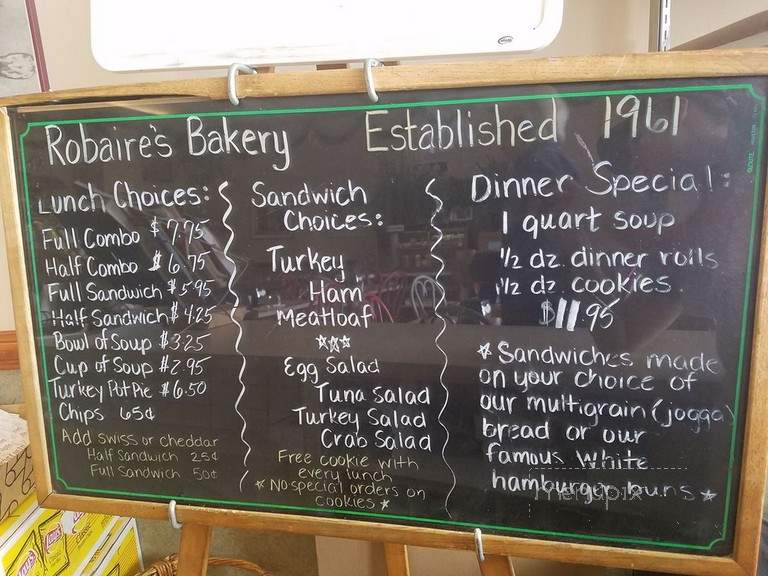 Robaire's Bakery Established 1961
Lunch Choices:
Full Combo $7.75
Half Combo $6.75
Full Sandwich $5.95
Half Sandwich $4.25
Bowl of Soup $3.25
Cup of Soup $2.95
Turkey Pot Pie $6.50
Chips 65¢
Add swiss or cheddar
Half Sandwich 25¢
Full Sandwich 50¢
Sandwich
Choices:
Turkey
Ham
Meatloaf
☆☆☆
Egg Salad
Tuna Salad
Turkey Salad
Crab Salad
Free cookie with
every lunch
☆ No special orders on
cookies ☆
Dinner Special:
1 quart soup
1/2 dz. dinner rolls
1/2 dz. cookies.
$11.95
☆ Sandwiches made
on your choice of
our multigrain (jogga)
bread or our
famous white
hamburger buns ☆
menupix